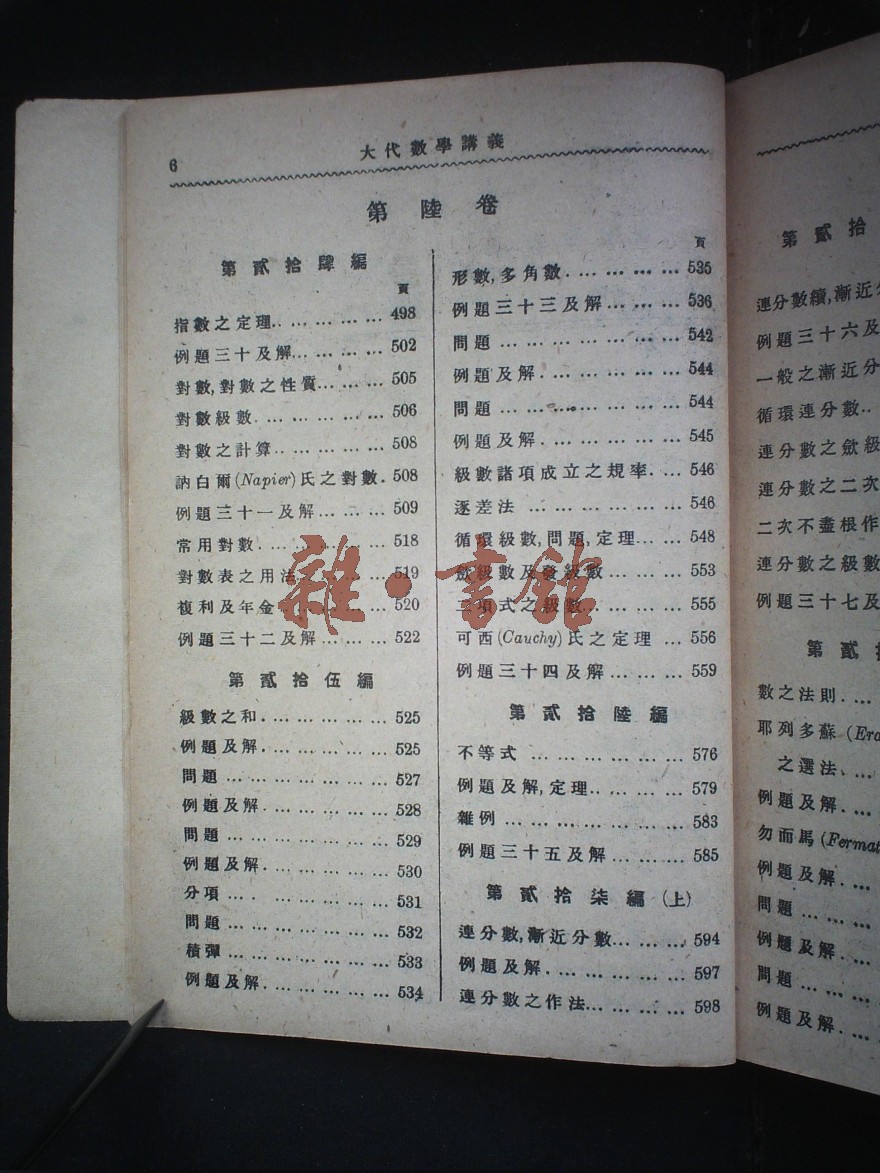 6
大代數學講義
第陸卷
第貳拾肆編
頁
指數之定理.. ... ... ... ... 498
例題三十及解... ... ... ... 502
對數,對數之性質... ... ... 505
對數級數. ... ... ... ... ... 506
對數之計算.. ... ... ... ... 508
訥白爾(Napier)氏之對數. 508
例題三十一及解... ... ... 509
常用對數. ... ... ... ... ... 518
對數表之用法 ... ... ... 519
複利及年金. ... ... ... ... 520
例題三十二及解... ... ... 522
第貳拾伍編
級數之和. ... ... ... ... ... 525
例題及解. ... ... ... ... ... 525
問題 ... ... ... ... ... ... 527
例題及解. ... ... ... ... ... 528
問題 ... ... ... ... ... ... 529
例題及解. ... ... ... ... ... 530
分項 ... . ... ... ... ... 531
問題 ... ... ... ... ... ... 532
積彈 ... ... ... ... ... ... 533
例題及解. ... ... ... ... ... 534
頁
形數,多角數. ... ... ... ... 535
例題三十三及解... ... ... 536
問題 ... ... ... ... ... ... 542
例題及解. ... ... ... ... ... 544
問題 ... ... ... ... ... ... 544
例題及解. ... ... ... ... ... 545
級數諸項成立之規率. ... 546
逐差法 ... ... ... ... ... 546
循環級數,問題,定理... ... 548
斂級數及發級數... ... ... 553
二項式之級數... ... ... ... 555
可西(Cauchy)氏之定理 ... 556
例題三十四及解... ... ... 559
第貳拾陸編
不等式 ... ... ... ... ... 576
例題及解,定理.. ... ... ... 579
雜例 ... ... ... ... ... ... 583
例題三十五及解... ... ... 585
第貳拾柒編(上)
連分數,漸近分數... ... ... 594
例題及解. ... ... ... ... ... 597
連分數之作法... ... ... ... 598
第貳拾
連分數續,漸近
例題三十六及
一般之漸近分
循環連分數..
連分數之斂級
連分數之二次
二次不盡根作
連分數之級數
例題三十七及
第貳
數之法則. ...
耶列多蘇(Era
之選法. ...
例題及解. ...
勿而馬(Fermat
例題及解. ...
問題 ... ...
例題及解. ...
問題 ... ...
例題及解. ...
雜·書館